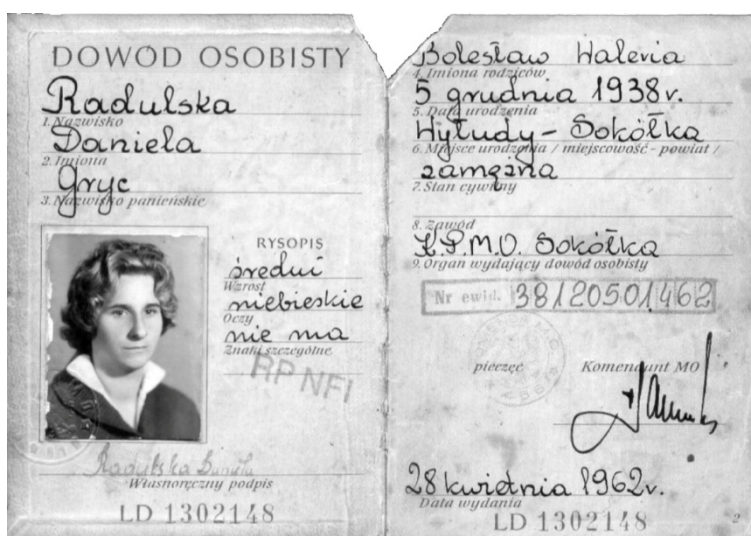 DOWÓD OSOBISTY
Radulska
1. Nazwisko
Daniela
2. Imiona
Gryc
3. Nazwisko panieńskie
RYSOPIS
średni
Wzrost
niebieskie
Oczy
nie ma
Znaki szczególne
RP NFI
Radulska
Własnoręczny podpis
LD 1302148
Bolesław Waleria
4. Imiona rodziców
5 grudnia 1938 r.
5. Data urodzenia
Wyłudy - Sokółka
6. Miejsce urodzenia / miejscowość - powiat /
zamężna
7. Stan cywilny
8. Zawód
K.P.M.O. Sokółka
9. Organ wydający dowód osobisty
Nr ewid. 38120501462
pieczęć Komendant MO
28 kwietnia 1962 r.
Data wydania
LD 1302148
2